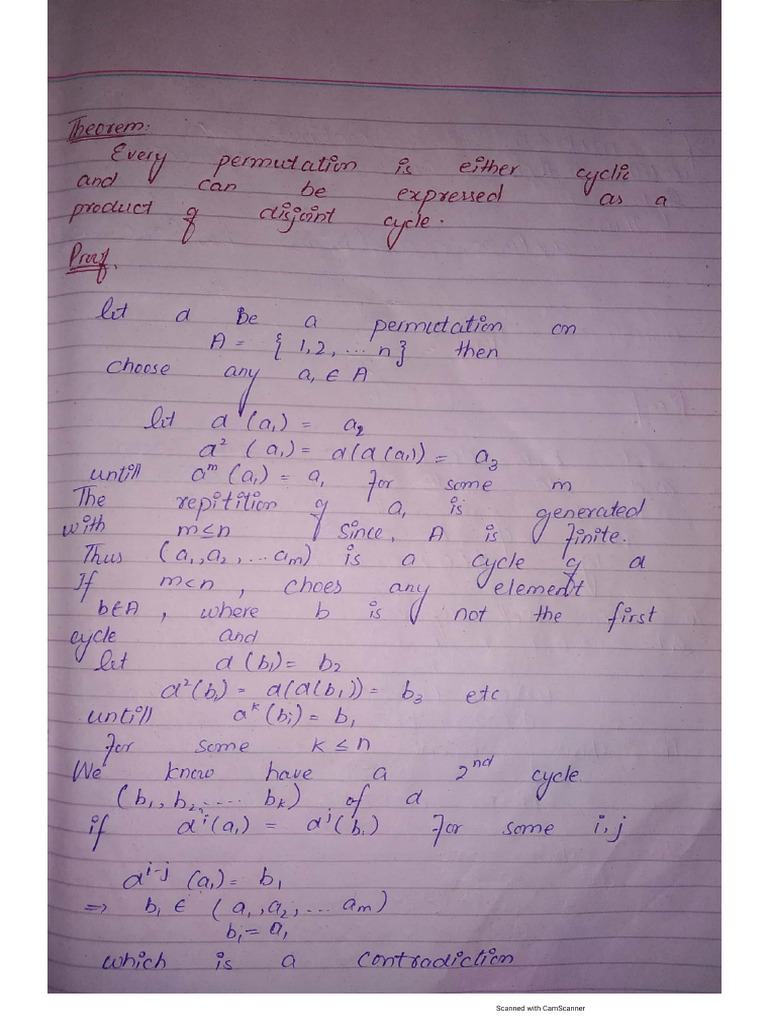 Theorem:
Every permutation is either cyclic
and can be expressed as a
product of disjoint cycle.
Proof.
let α be a permutation on
A = { 1,2, ... n} then
choose any a₁ ∈ A
let α (a₁) = a₂
α² (a₁) = α(α(a₁)) = a₃
untill αᵐ (a₁) = a₁ for some m
The repitition of a₁ is generated
with m≤n since, A is finite.
Thus (a₁,a₂,...am) is a cycle of α
If m<n, choes any element
b∈A, where b is not the first
cycle and
let α (b₁) = b₂
α²(b₁) = α(α(b₁)) = b₃ etc
untill αᵏ(b₁) = b₁
for some k ≤ n
We know have a 2nd cycle
(b₁,b₂,.... bk) of α
if αⁱ(a₁) = αʲ(b₁) for some i,j
αⁱ⁻ʲ (a₁) = b₁
⇒ b₁ ∈ (a₁,a₂,...am)
b₁ = a₁
which is a contradiction
Scanned with CamScanner